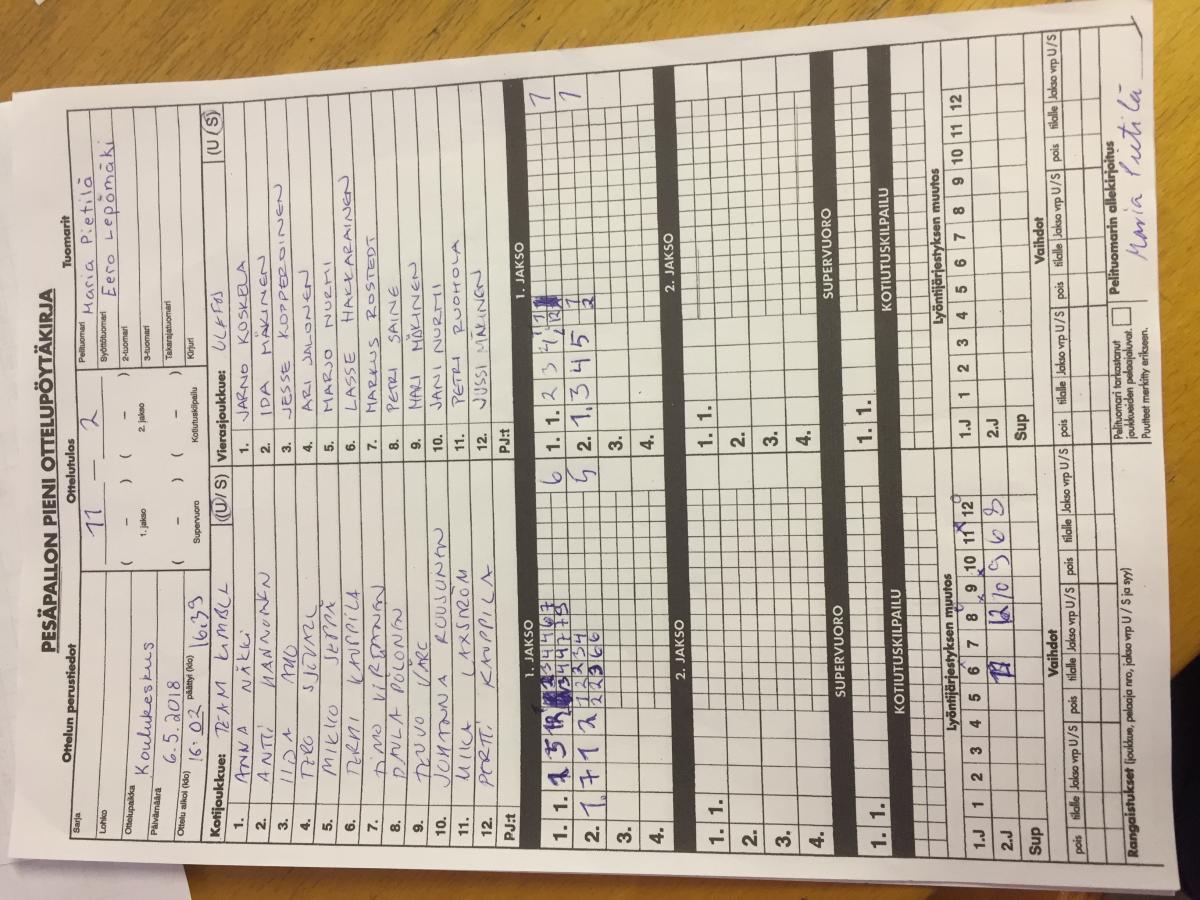 PESÄPALLON PIENI OTTELUPÖYTÄKIRJA
Ottelun perustiedot
Sarja
Lohko
Ottelupaikka Koulukeskus
Päivämäärä 6.5.2018
Ottelu alkoi (klo) 16:02 päättyi (klo) 16:39
Ottelutulos
11 — 2
( – ) ( – )
1. jakso 2. jakso
( – ) ( – )
Supervuoro Kotiutuskilpailu
Tuomarit
Pelituomari Maria Pietilä
Syöttötuomari Eero Lepömäki
2-tuomari
3-tuomari
Takarajatuomari
Kirjuri
Kotijoukkue: TEAM KIMBLE (U / S)
1. ANNA NÄKKI
2. ANTTI HANNONEN
3. IIDA AHO
4. TERO SJÖVALL
5. MIKKO SEPPÄ
6. TERHI KAUPPILA
7. TIMO VIRTANEN
8. PAULA POLONEN
9. TEUVO VÄRE
10. JOHANNA RUUSUNEN
11. MIIKA LAXSTRÖM
12. PERTTI KAUPPILA
PJ:t
Vierasjoukkue: (U / S)
1. JARNO KOSKELA
2. IDA MÄKINEN
3. JESSE KOPPEROINEN
4. ARI JALONEN
5. MARJO NURMI
6. LASSE HAKKARAINEN
7. MARKUS ROSTEDT
8. PETRI SAINE
9. MARI MÄKINEN
10. JANI NURMI
11. PETRI RUOHOLA
12. JUSSI MÄKINEN
PJ:t
1. JAKSO
1. JAKSO
1. 1. 6
2. 5
3.
4.
1. 1. 2 3 4 1
2. 1. 3 4 5 1
3.
4.
2. JAKSO
2. JAKSO
1. 1.
2.
3.
4.
1. 1.
2.
3.
4.
SUPERVUORO
SUPERVUORO
1. 1.
1. 1.
KOTIUTUSKILPAILU
KOTIUTUSKILPAILU
Lyöntijärjestyksen muutos
1.J 1 2 3 4 5 6 7 8 9 10 11 12
2.J 12 10 9 6 8
Sup
Lyöntijärjestyksen muutos
1.J 1 2 3 4 5 6 7 8 9 10 11 12
2.J
Sup
Vaihdot
pois tilalle Jakso vrp U/S pois tilalle Jakso vrp U/S pois tilalle Jakso vrp U/S
Vaihdot
pois tilalle Jakso vrp U/S pois tilalle Jakso vrp U/S pois tilalle Jakso vrp U/S
Rangaistukset (joukkue, pelaaja nro, jakso vrp U / S ja syy)
Pelituomari tarkastanut
joukkueiden pelaajaluvat.
Puutteet merkitty erikseen.
Pelituomarin allekirjoitus
Maria Pietilä